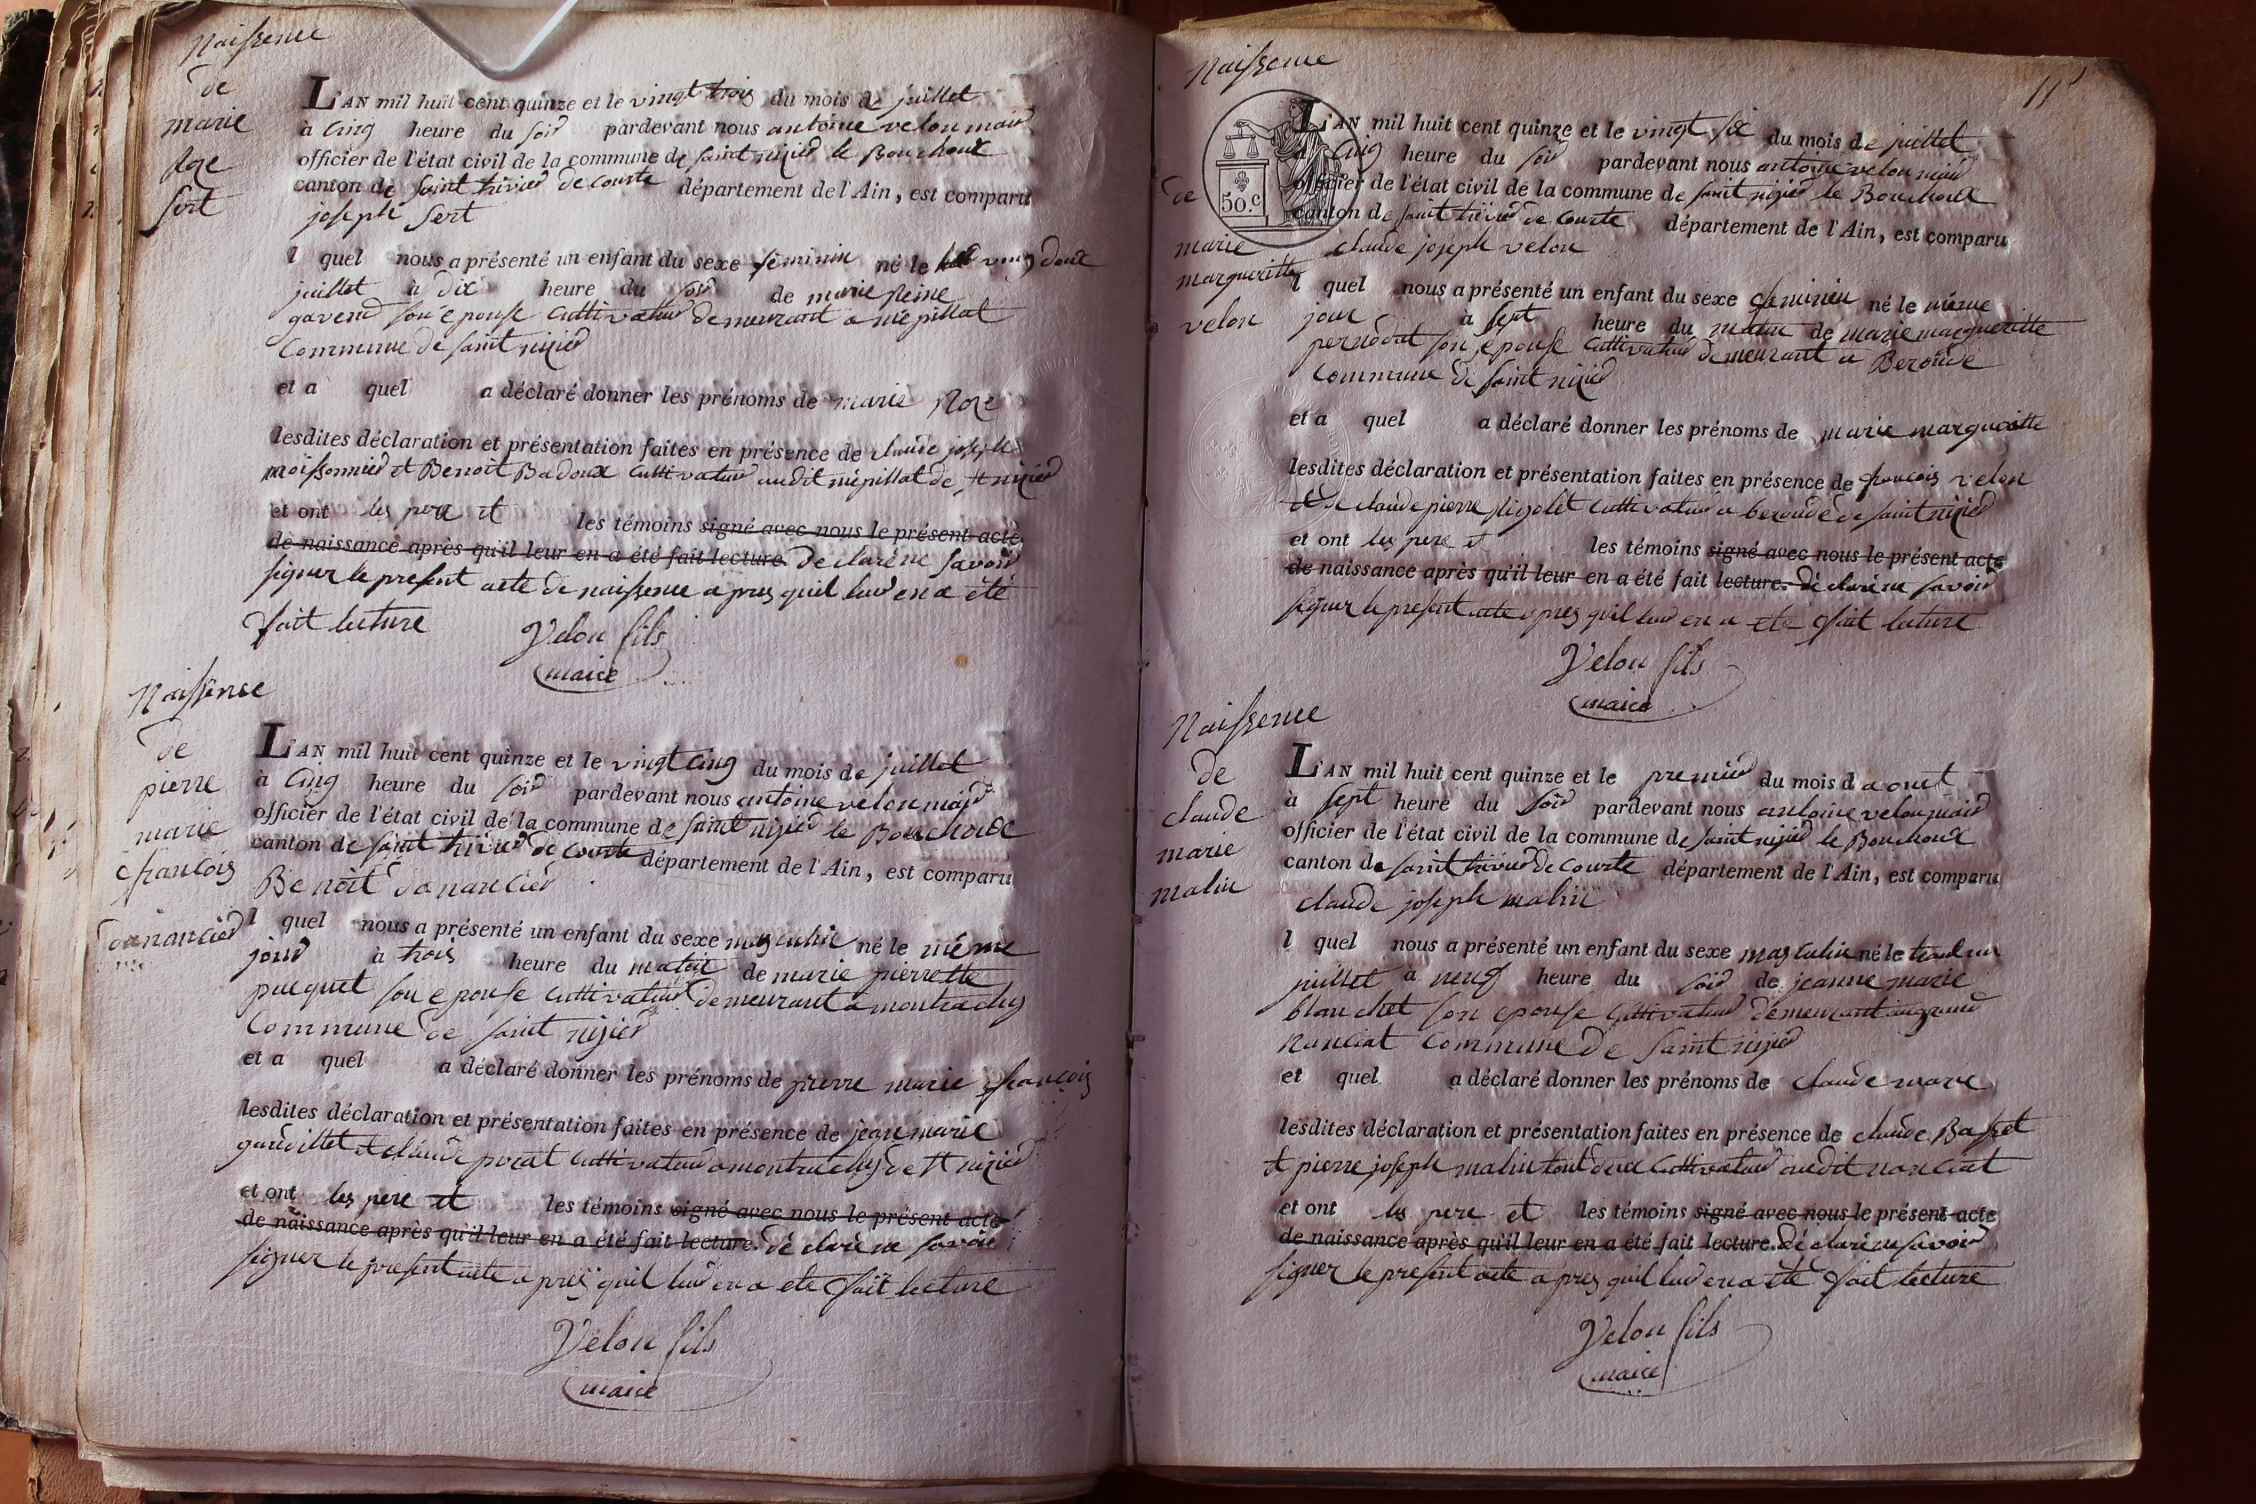 Naissence
de
marie
Roze
Sert
L'AN mil huit cent quinze et le vingt trois du mois de juillet
à cinq heure du soir pardevant nous antoine velon mair
officier de l'état civil de la commune de saint nizier le Bouchoux
canton de saint trivier de courte département de l'Ain, est comparu
joseph Sert
l quel nous a présenté un enfant du sexe féminin né le vingt deux
juillet à dix heure du soir de marie Reine
gavend son epouse cultivateur demeurant a mépillat
Commune de saint nizier
et a quel a déclaré donner les prénoms de marie Roze
lesdites déclaration et présentation faites en présence de claude joseph
moissonnier et Benoit Badoux cultivateur audit mépillat de st nizier
et ont les pere et les témoins signé avec nous le présent acte
de naissance après qu'il leur en a été fait lecture. declaré ne savoir
signer le present acte de naissence apres quil leur en a été
fait lecture
Velon fils
maire
Naissence
de
pierre
marie
francois
donancier
L'AN mil huit cent quinze et le vingt cinq du mois de juillet
à cinq heure du soir pardevant nous antoine velon mair
officier de l'état civil de la commune de saint nizier le Bouchoux
canton de saint trivier de courte département de l'Ain, est comparu
Benoit donancier
l quel nous a présenté un enfant du sexe masculin né le même
jour à trois heure du matin de marie pierrette
puequet son epouse cultivateur demeurant a montrachy
Commune de saint nizier
et a quel a déclaré donner les prénoms de pierre marie francois
lesdites déclaration et présentation faites en présence de jean marie
et claude cultivateur a montrachy de st nizier
et ont les pere et les témoins signé avec nous le présent acte
de naissance après qu'il leur en a été fait lecture. déclaré ne savoir
signer le present acte apres quil leur en a ete fait lecture
Velon fils
maire
11
Naissence
de
marie
margueritte
velon
50.c
L'AN mil huit cent quinze et le vingt six du mois de juillet
à cinq heure du soir pardevant nous antoine velon mair
officier de l'état civil de la commune de saint nizier le Bouchoux
canton de saint trivier de courte département de l'Ain, est comparu
claude joseph velon
l quel nous a présenté un enfant du sexe feminin né le même
jour à sept heure du matin de marie margueritte
pernodat son epouse cultivateur demeurant a Beroude
Commune de saint nizier
et a quel a déclaré donner les prénoms de marie margueritte
lesdites déclaration et présentation faites en présence de francois velon
et de claude pierre Rigolet cultivateur a beroude de saint nizier
et ont les pere et les témoins signé avec nous le présent acte
de naissance après qu'il leur en a été fait lecture. déclaré ne savoir
signer le present acte apres quil leur en a ete fait lecture
Velon fils
maire
Naissence
de
claude
marie
malin
L'AN mil huit cent quinze et le premier du mois d aout
à sept heure du soir pardevant nous antoine velon mair
officier de l'état civil de la commune de saint nizier le Bouchoux
canton de saint trivier de courte département de l'Ain, est comparu
claude joseph malin
l quel nous a présenté un enfant du sexe masculin né le trent un
juillet à neuf heure du soir de jeanne marie
blanchet son epouse cultivateur demeurant au grand
nanciat Commune de saint nizier
et quel a déclaré donner les prénoms de claude marie
lesdites déclaration et présentation faites en présence de claude Basset
et pierre joseph malin tout deux cultivateur audit nanciat
et ont les pere et les témoins signé avec nous le présent acte
de naissance après qu'il leur en a été fait lecture. déclaré ne savoir
signer le present acte apres quil leur en a eté fait lecture
Velon fils
maire